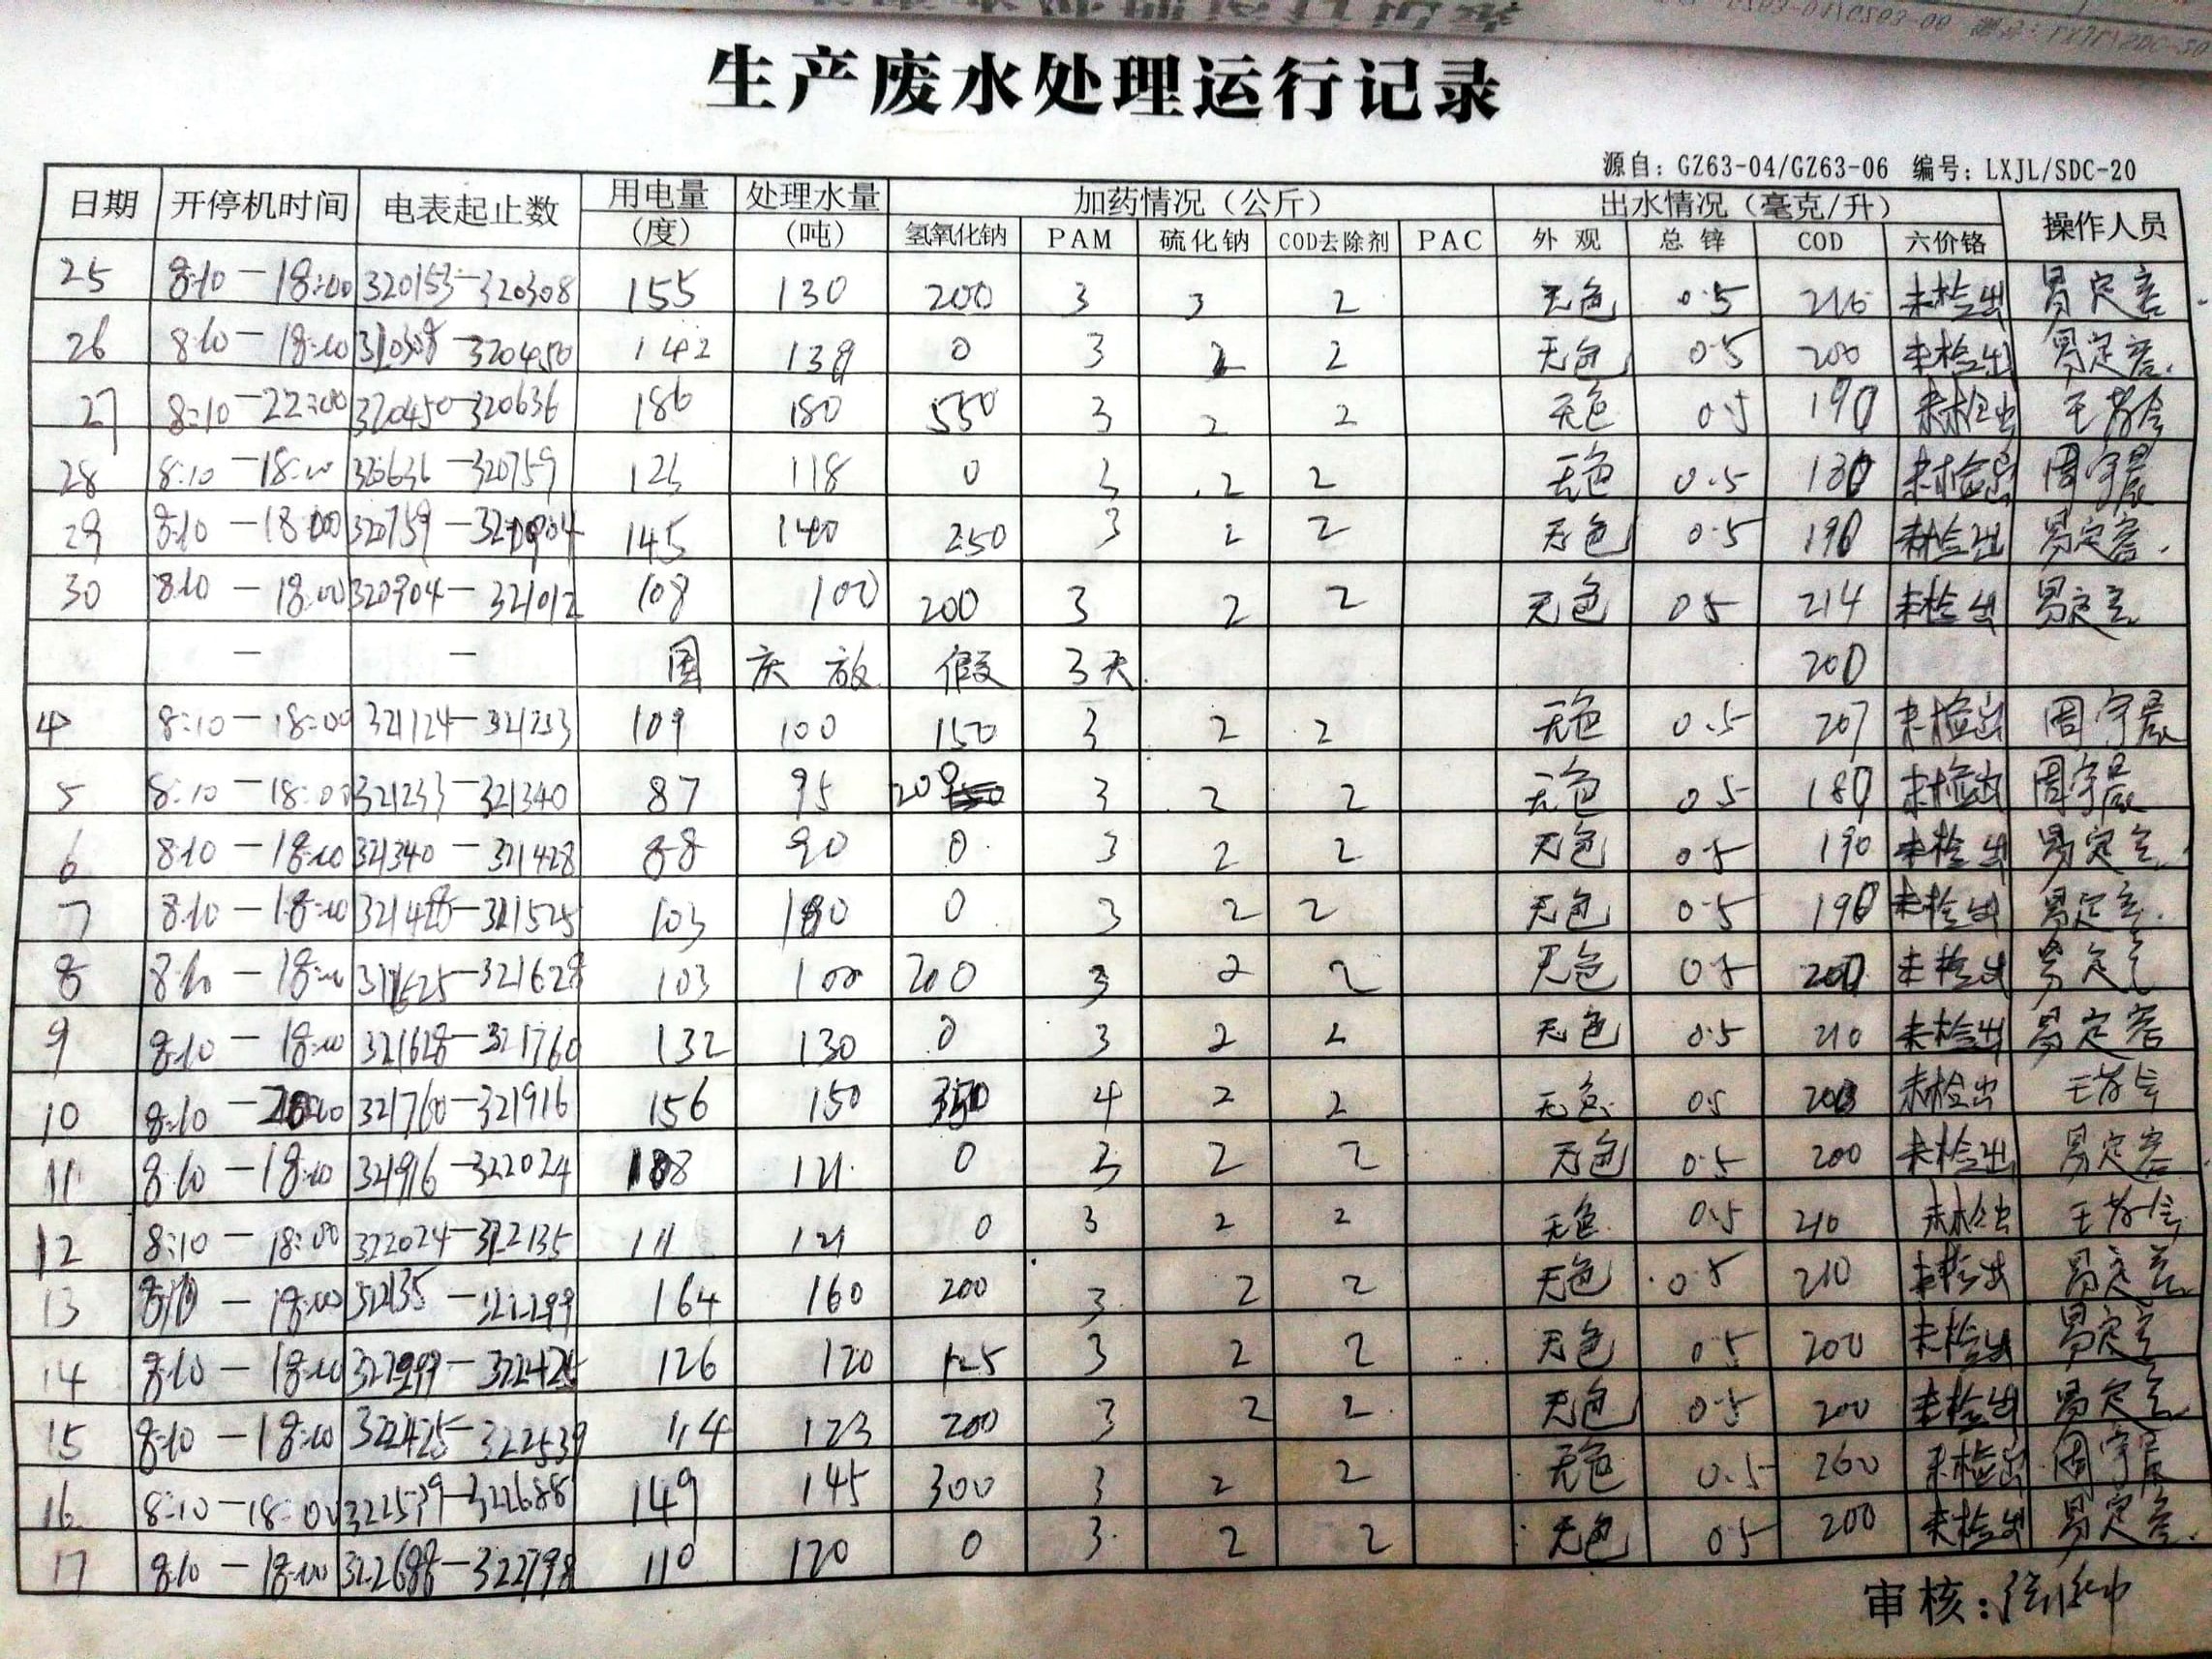 生产废水处理运行记录
源自：GZ63-04/GZ63-06 编号：LXJL/SDC-20
日期 开停机时间 电表起止数 用电量（度） 处理水量（吨） 加药情况（公斤） 出水情况（毫克/升） 操作人员
氢氧化钠 PAM 硫化钠 COD去除剂 PAC 外观 总锌 COD 六价铬
25 8:10-18:00 320153-320308 155 130 200 3 3 2 无色 0.5 210 未检出
26 8:10-18:00 320308-320450 142 139 0 3 2 2 无色 0.5 200 未检出
27 8:10-22:00 320450-320636 186 180 550 3 2 2 无色 0.5 190 未检出
28 8:10-18:00 320636-320759 123 118 0 3 2 2 无色 0.5 180 未检出 周宇晨
29 8:10-18:00 320759-320904 145 140 250 3 2 2 无色 0.5 190 未检出
30 8:10-18:00 320904-321012 108 100 200 3 2 2 无色 0.5 214 未检出
- - 国庆放假3天 200
4 8:10-18:00 321124-321233 109 100 150 3 2 2 无色 0.5 207 未检出 周宇晨
5 8:10-18:00 321233-321340 87 95 200 3 2 2 无色 0.5 180 未检出 周宇晨
6 8:10-18:00 321340-321428 88 90 0 3 2 2 无色 0.5 190 未检出
7 8:10-18:00 321428-321525 103 100 0 3 2 2 无色 0.5 190 未检出
8 8:10-18:00 321525-321628 103 100 200 3 2 2 无色 0.5 200 未检出
9 8:10-18:00 321628-321760 132 130 0 3 2 2 无色 0.5 210 未检出
10 8:10-20:00 321760-321916 156 150 350 4 2 2 无色 0.5 未检出
11 8:10-18:00 321916-322024 108 121 0 3 2 2 无色 0.5 200 未检出
12 8:10-18:00 322024-322135 111 121 0 3 2 2 无色 0.5 210 未检出
13 8:10-18:00 322135-322299 164 160 200 3 2 2 无色 0.5 210 未检出
14 8:10-18:00 322299-322425 126 120 125 3 2 2 无色 0.5 200 未检出
15 8:10-18:00 322425-322539 114 123 200 3 2 2 无色 0.5 200 未检出
16 8:10-18:00 322539-322688 149 145 300 3 2 2 无色 0.5 200 未检出 周宇晨
17 8:10-18:00 322688-322798 110 120 0 3 2 2 无色 0.5 200 未检出
审核：